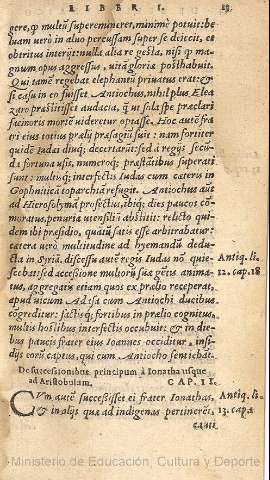 LIBER I. 13.
gere, q̃ multũ superemineret, minimè potuit: be
luam verò in aluo percussam super se deiecit, et
obtritus interijt: nulla alia re gesta, nisi q̃ ma-
gnum opus aggressus, uita gloria posthabuit.
Qui tamẽ regebat elephantẽ priuatus erat: &
si casu in eo fuisset Antiochus, nihil plus Elea
zaro præstitisset audacia, q̃ ut sola spe præclari
facinoris mortẽ videretur optasse. Hoc autẽ fra
tri eius totius prælij præsagiũ fuit: nam fortiter
quidẽ Iudas diuq; decertauit: sed à regijs secun
da fortuna usis, numeroq; præstãtibus superati
sunt: multisq; interfectis Iudas cum cæteris in
Gophniticã toparchiã refugit. Antiochus aut
ad Hierosolymã profectus, ibiq; dies paucos cõ
moratus, penuria utensiliũ abscessit: relicto qui-
dem ibi præsidio, quãtũ satis esse arbitrabatur:
cætera uerò multitudine ad hyemandũ dedu-
cta in Syriã. discessu autẽ regis Iudas nõ quie-
scebat: sed accessione multorũ suæ gẽtis anima-
tus, aggregatis etiam quos ex prælio receperat,
apud uicum Adasa cum Antiochi ducibus
cõgreditur: factisq; fortibus in prælio cognitus,
multis hostibus interfectis occubuit: & in die-
bus paucis frater eius Ioannes occiditur, insi-
dijs eorũ captus, qui cum Antiocho sentiebãt.
Antiq. li.
12. cap. 18
De successionibus principum à Ionatha usque
ad Aristobulum. CAP. II.
CVm autẽ successisset ei frater Ionathas,
& in alijs quæ ad indigenas pertinerẽt,
Antiq. li.
13. cap.
Ministerio de Educación, Cultura y Deporte